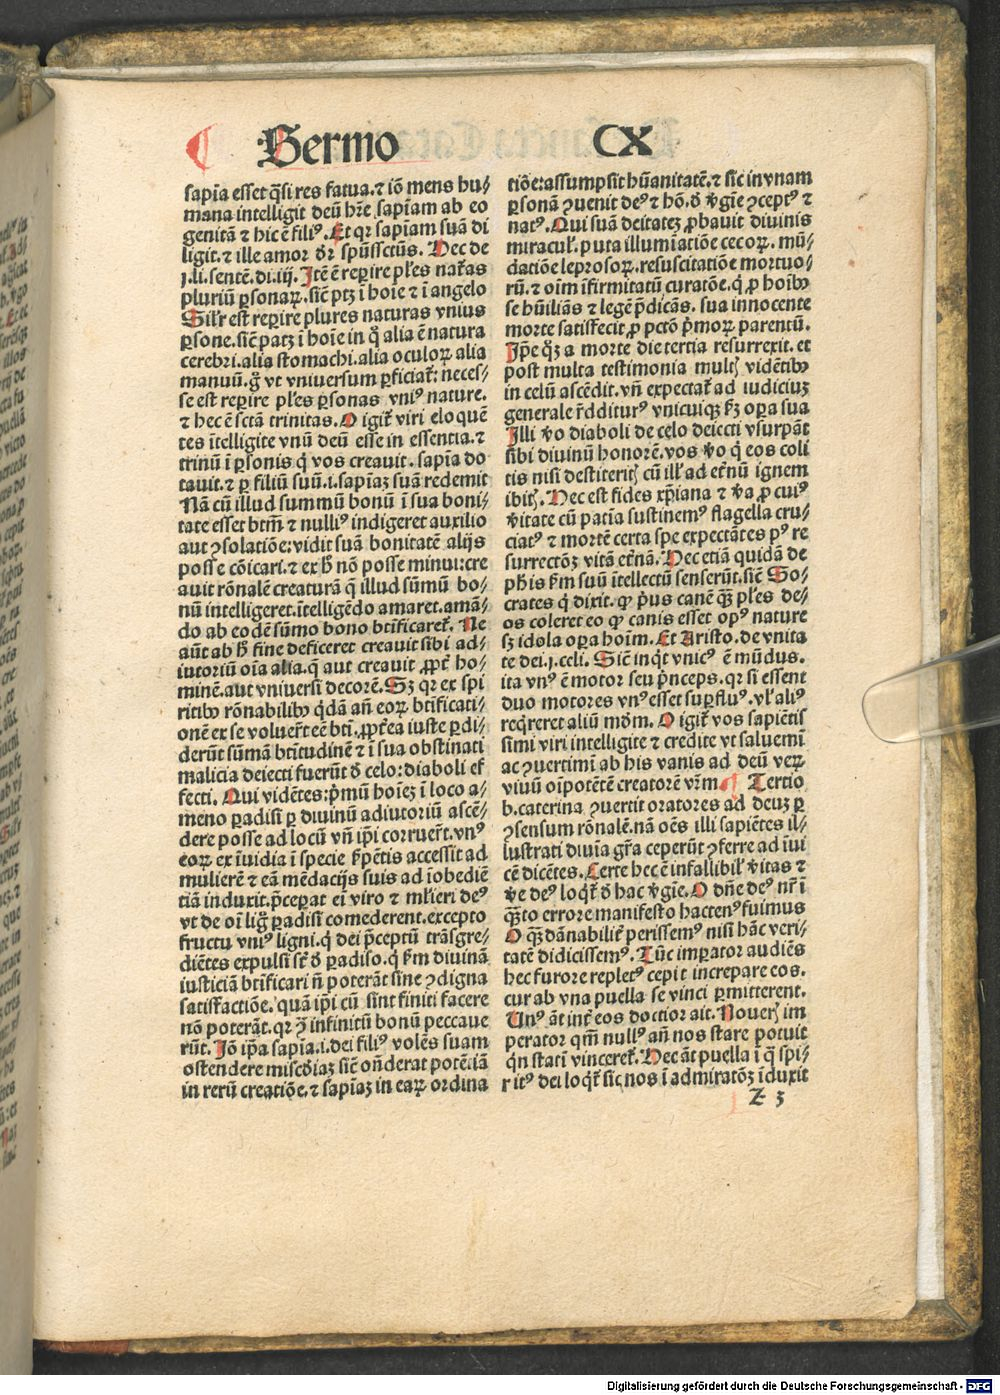 Sermo CX
sapīa esset q̄si res fatua. ⁊ iō mens hu⸗
mana intelligit deū hr̄e sapīam ab eo
genitā ⁊ hic ē filiꝰ. Et qꝛ sapīam suā di
ligit. ⁊ ille amor dr̄ spūssctūs. Hec de
j. li. sentē. di. iij. Itē ē reꝑire pl̄es nar̄as
pluriū ꝑsonaꝝ. sic̄ ptꝫ ī hoīe ⁊ ī angelo
Sil̄r est reꝑire plures naturas vnius
ꝑsone. sic̄ patꝫ ī hoīe in q̄ alia ē natura
cerebri. alia stomachi. alia oculoꝝ alia
manuū. g̊ vt vniuersum ꝑficiat̄: neces⸗
se est reꝑire pl̄es ꝑsonas vniꝰ nature.
⁊ hec ē sctā trinitas. O igit̄ viri eloquē
tes ītelligite vnū deū esse in essentia. ⁊
trinū ī ꝑsonis q̇ vos creauit. sapīa do
tauit. ⁊ ꝑ filiū suū. i. sapīaꝫ suā redemit
Nā cū illud summū bonū ī sua boni⸗
tate esset btm̄ ⁊ nulliꝰ indigeret auxilio
aut ꝯsolatiōe: vidit suā bonitatē alijs
posse cōicari. ⁊ ex h̄ nō posse minui: cre
auit rōnalē creaturā q̄ illud sūmū bo⸗
nū intelligeret. ītelligēdo amaret. amā⸗
do ab eodē sūmo bono btīficaret̄. Ne
aūt ab h̄ fine deficeret creauit sibi ad⸗
iutoriū oīa alia. q̄ aut creauit ꝓpt̄ ho⸗
minē. aut vniuersi decorē. Sꝫ qꝛ ex spi
ritibꝰ rōnabilibꝰ q̇dā añ eoꝝ btificati⸗
onē ex se voluer̄t eē btī. ꝓpt̄ea iuste ꝑdi⸗
derūt sūmā btītudinē ⁊ ī sua obstinati
malicia deiecti fuerūt d̄ celo: diaboli ef
fecti. Qui vidētes: p̄mū hoīeꝫ ī loco a⸗
meno ꝑadisi ꝑ diuinū adiutoriū ascē⸗
dere posse ad locū vn̄ ip̄i corruer̄t. vnꝰ
eoꝝ ex īuidia ī specie ẜpētis accessit ad
mulierē ⁊ eā mēdacijs suis ad īobediē
tiā induxit. p̄ceꝑat eī viro ⁊ ml̄ieri deꝰ
vt de oī lig̊ ꝑadisi comederent. excepto
fructu vniꝰ ligni. q̇ dei p̄ceptū trāsgre⸗
diētes expulsi st̄ d̄ ꝑadiso. q̇ ẜm diuinā
iusticiā btificari n̄ poterāt sine ꝯdigna
satisfactiōe. quā ip̄i cū sint finiti facere
nō poterāt. qꝛ ꝯ infinitū bonū peccaue
rūt. Iō ip̄a sapīa. i. dei filiꝰ volēs suam
ostendere misc̄diaꝫ sic̄ on̄derat potētīā
in rerū creatiōe. ⁊ sapīaꝫ in eaꝝ ordina
tiōe: assumpsit hūanitatē. ⁊ sic in vnam
ꝑsonā ꝯuenit deꝰ ⁊ hō. d̄ v̄gīe ꝯceptꝰ ⁊
natꝰ. Qui suā deitateꝫ ꝓbauit diuinis
miracul̄. puta illumīatiōe cecoꝝ. mū⸗
datiōe leprosoꝝ. resuscitatiōe mortuo⸗
rū. ⁊ oīm īfirmitatū curatōe. q̇ ꝓ hoībꝰ
se hūiliās ⁊ legē p̄dicās. sua innocente
morte satisfecit ꝓ pctō p̄moꝝ parentū.
Ip̄e q̄ꝫ a morte die tertia resurrexit. et
post multa testimonia multꝭ vidētibꝰ
in celū ascēdit. vn̄ expectat̄ ad iudiciuꝫ
generale r̄dditurꝰ vnicuiqꝫ ẜꝫ oꝑa sua
Illi v̄o diaboli de celo deiecti vsurpāt
sibi diuinū honorē. vos v̄o q̇ eos coli
tis nisi destiteritꝭ cū ill̄ ad et̄nū ignem
ibitꝭ. Hec est fides xp̄iana ⁊ v̄a ꝓ cuiꝰ
v̄itate cū patīa sustinemꝰ flagella cru⸗
ciatꝰ ⁊ mortē certa spe expectātes pꝰ re
surrectōꝫ vitā et̄nā. Hec etiā quidā de
ph̄is ẜm suū ītellectū senserūt. sic̄ So⸗
crates q̇ dixit. ꝙ p̄us canē q̄ꝫ pl̄es de⸗
os coleret eo ꝙ canis esset opꝰ nature
sꝫ idola oꝑa hoīm. Et Aristo. de vnita
te dei. j. celi. Sic̄ inq̇t vnicꝰ ē mūdus.
ita vnꝰ ē motor seu p̄nceps. qꝛ si essent
duo motores vnꝰ esset suꝑfluꝰ. vl̄ aliꝰ
req̇reret aliū mōm. O igit̄ vos sapiētis
simi viri intelligite ⁊ credite vt saluemī
ac ꝯuertimī ab his vanis ad deū veꝝ
viuū oīpotētē creatorē vr̄m ¶ Tertio
b. caterina ꝯuertit oratores ad deuꝫ ꝑ
ꝯsensum rōnalē. nā oēs illi sapiētes il⸗
lustrati diuīa gr̄a ceperūt ꝯferre ad īui
cē dicētes. Certe hec ē infallibil̄ v̄itas ⁊
v̄e deꝰ loqt̄ d̄ hac v̄gīe. O dn̄e deꝰ nr̄ ī
q̄ꝫto errore manifesto hactenꝰ fuimus
O q̄ꝫ dānabilit̄ perissemꝰ nisi hāc veri⸗
tatē didicissemꝰ. Tūc imꝑator audiēs
hec furore repletꝰ cepit increpare eos.
cur ab vna puella se vinci ꝑmitterent.
Unꝰ āt int̄ eos doctior ait. Nouerꝭ im
perator qm̄ nullꝰ añ nos stare potuit
q̇n statī vinceret̄. Hec āt puella ī q̄ spi⸗
ritꝰ dei loqt̄ sic nos ī admiratōꝫ īduxit
Z 3
Digitalisierung gefördert durch die Deutsche Forschungsgemeinschaft - DFG